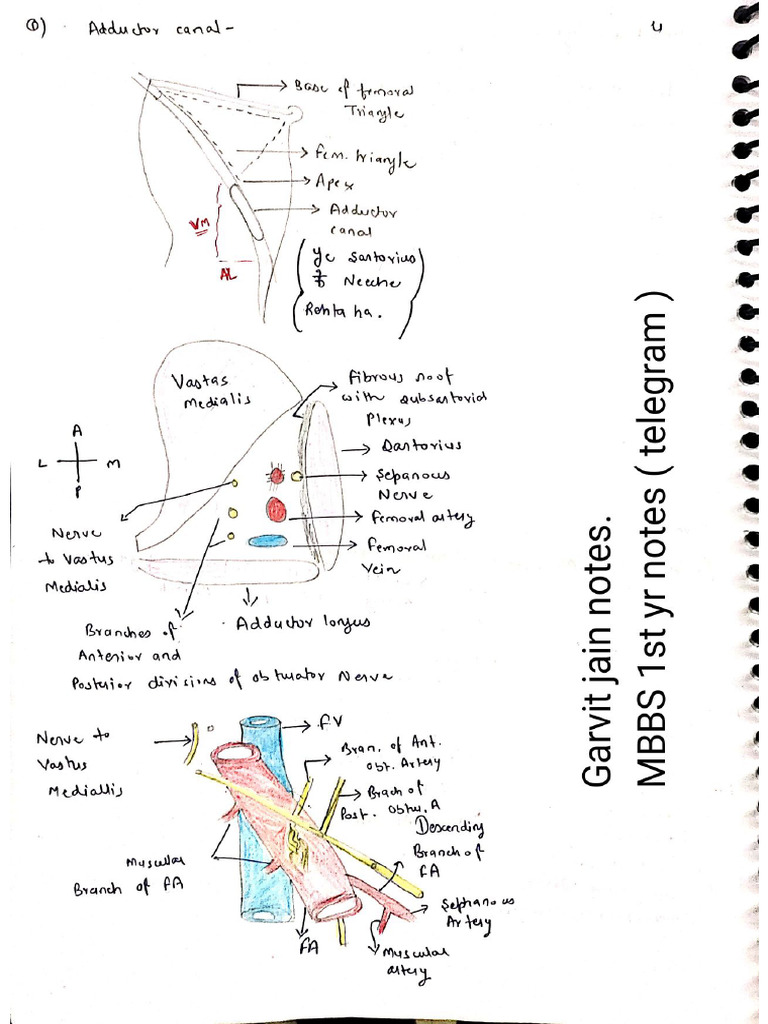 ①) Adductor canal -
4
Base of femoral
Triangle
Fem. triangle
Apex
Adductor
canal
VM
AL
ye Sartorius
Neeche
Rehta ha.
Vastas
Medialis
Fibrous roof
with subsartorial
Plexus
Sartorius
Sepanous
Nerve
Femoral artery
Femoral
Vein
A
L M
P
Nerve
to Vastus
Medialis
Adductor longus
Branches of
Anterior and
Posterior divisions of obtuator Nerve
Nerve to
Vastus
Mediallis
FV
Bran. of Ant.
obt. Artery
Brach of
Post. obtu. A
Descending
Branch of
FA
Muscular
Branch of FA
Sephanous
Artery
FA
Muscular
artery
Garvit jain notes.
MBBS 1st yr notes ( telegram )